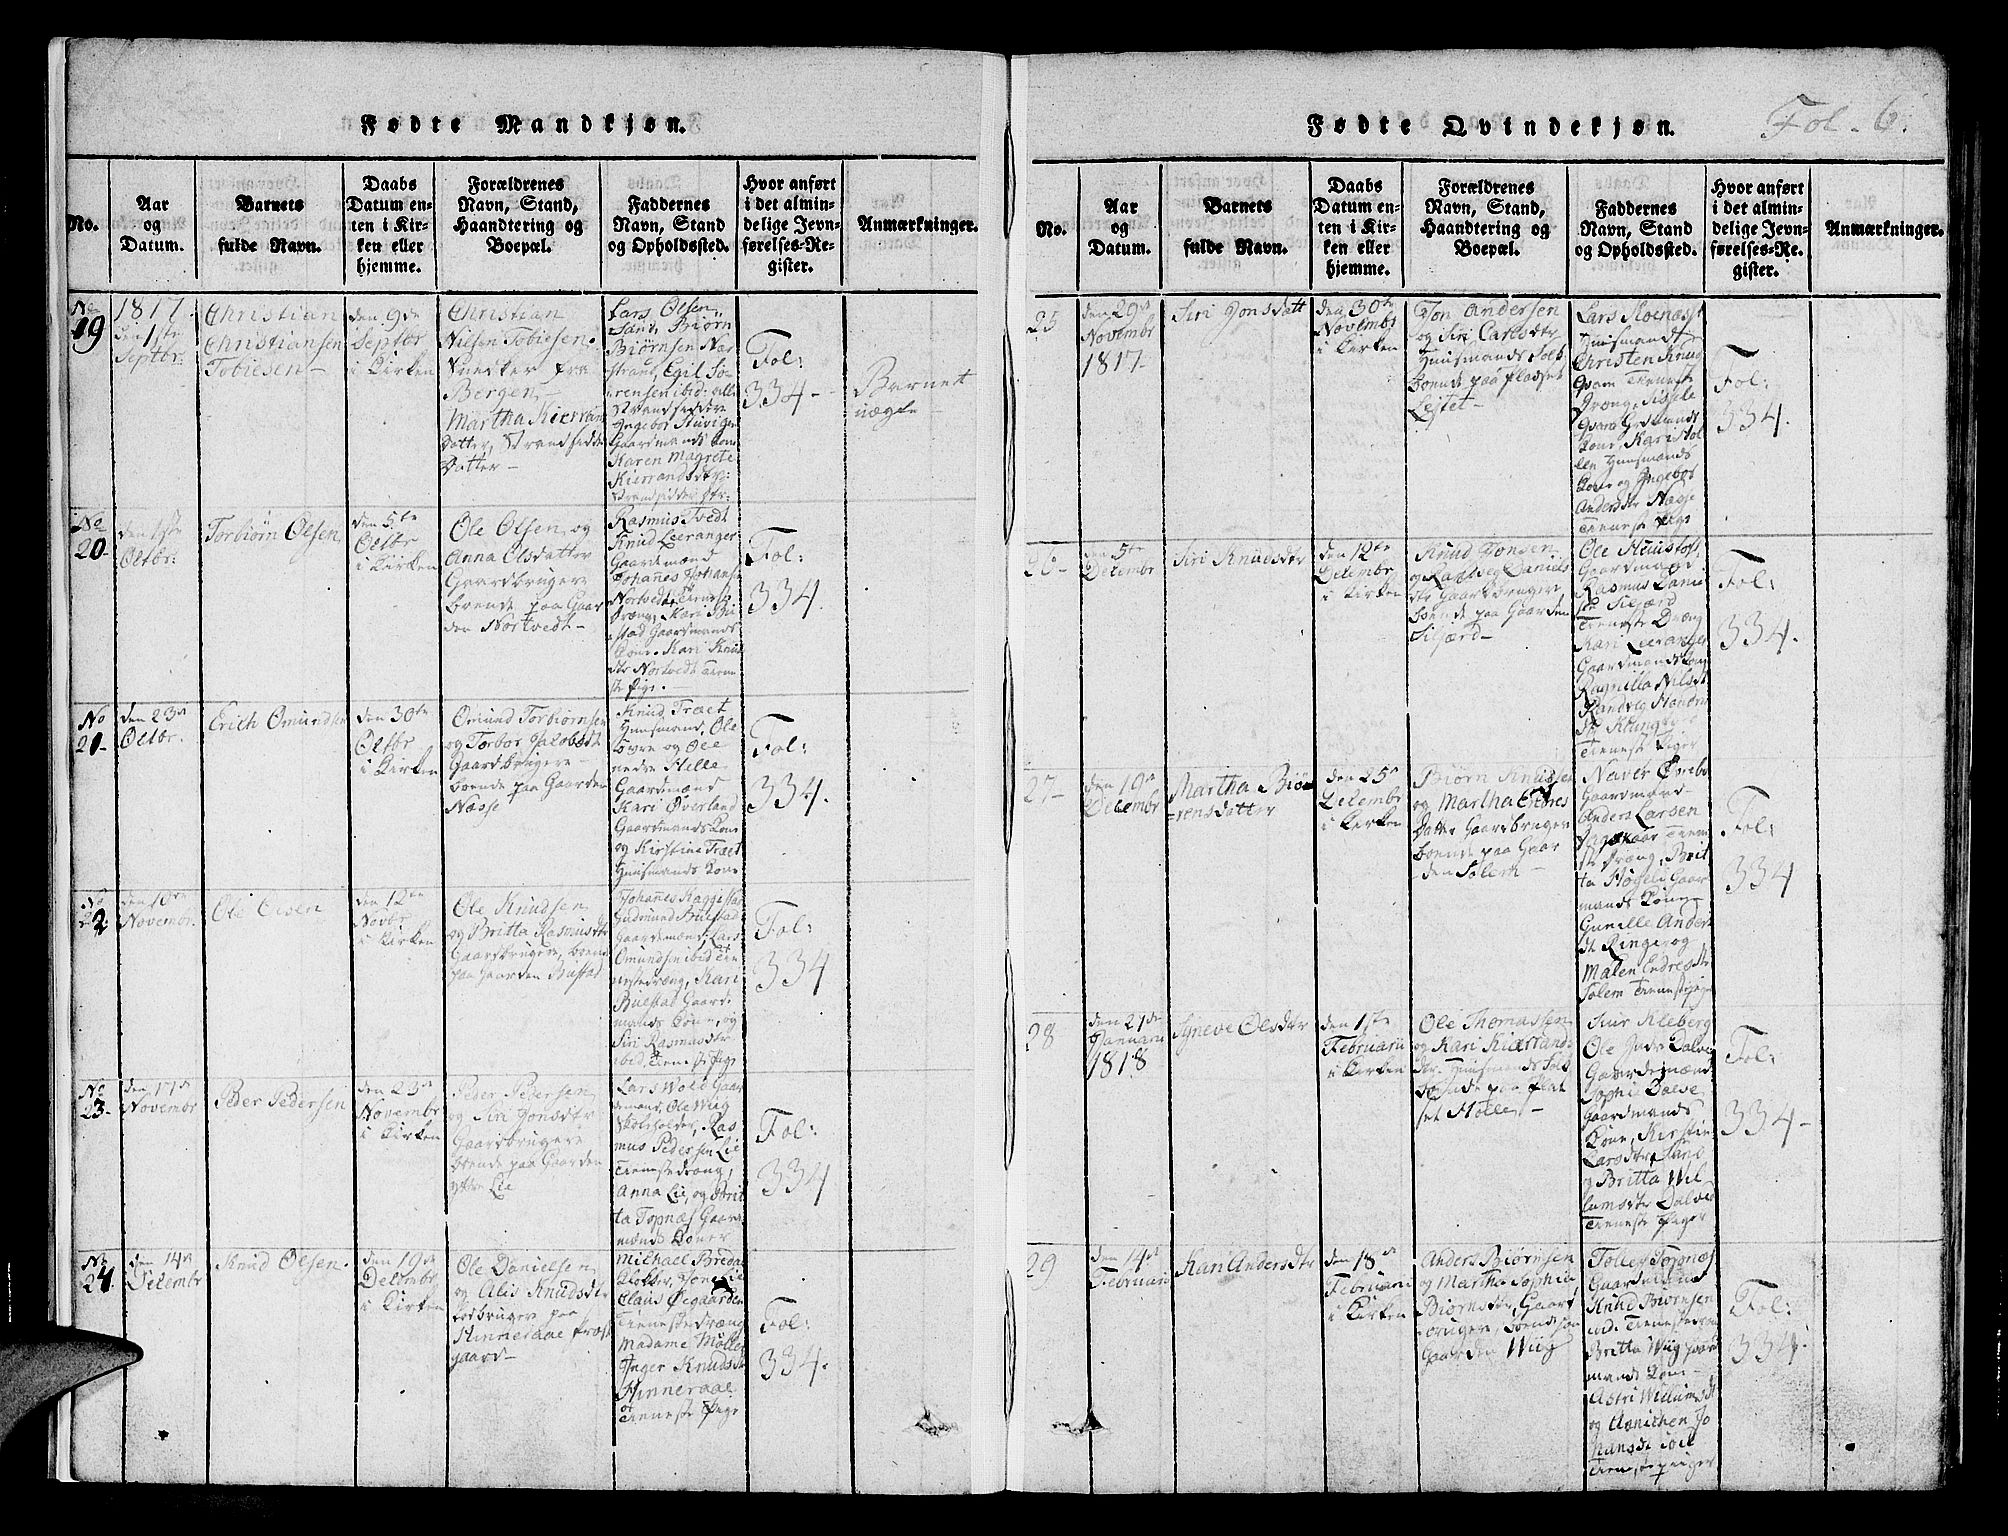 Fødte Mandkjøn.
No.
Aar
og
Datum.
Barnets
fulde Navn.
Daabs
Datum en-
ten i Kir-
ken eller
hjemme.
Forældrenes
Navn, Stand,
Haandtering og
Boepæl.
Faddernes
Navn, Stand
og Opholdssted.
Hvor anført
i det almin-
delige Jevn-
førelses-Re-
gister.
Anmærkninger.
No
19
1817.
den 1ste
Septbr.
Christian
Christiansen
Tobiesen
den 9de
Septbr
i Kirken
Christian
Nilsen Tobiesen
Snedker fra
Bergen
Martha Kierrans
Datter, Strandsidder
Datter
Lars Olsen
Sand, Biørn
Biørnsen Nar
strand, Egil Sø
rensen ibid: alle
Strandsidder
Ingebor
Gaardmands Kone
Karen Magrete
Kierrandsdtr:
Strandsidder
Fol:
334-
Barnet
uægte
No
20
den 1ste
Octbr:
Torbiørn Olsen
den 5te
Octbr
i Kirken
Ole Olsen og
Anna Olsdatter
Gaardbrugere
boende paa Gaar
den Nortvedt
Rasmus Tvedt
Knud Leeranger
Gaardmænd
Johanes Johansen
Nortvedt Tieneste
Dræng, Kari
Gaardmands
Kone. Kari Knuds
dtr Nortvedt Tiene
ste Pige.
Fol:
334.
No
21
den 23de
Octbr.
Erich Omundsen
den 30te
Octbr
i Kirken
Omund Torbiørnsen
og Torbor Jacobsdtr
Gaardbrugere
boende paa Gaarden
Næsse
Knud Træet
Huusmand, Ole
øvre og Ole
nedre Helle
Gaardmænd
Kari Øverland
Gaardmands Kone
og Kirstine Træet
Huusmands Kone
Fol:
334.
No
22
den 10de
Novembr.
Ole Olsen
den 12te
Novbr
i Kirken
Ole Knudsen
og Britta Rasmusdtr
Gaardbrugere, boende
paa Gaarden Bustad
Johanes
Gudmund Buestad
Gaardmænd, Lars
Omundsen ibid Tie
nestedræng, Kari
Buestad Gaard
mands Kone, og
Siri Rasmusdtr
ibid Tieneste Pige
Fol:
334
No
23
den 17de
Novembr
Peder Pedersen
den 23de
Novembr
i Kirken
Peder Pedersen
og Siri Jonsdtr
Gaardbrugere
boende paa Gaarden
yttre Lie
Lars Wold Gaar
demand, Ole Wiig
Skoleholder, Ras
mus Pedersen Lie
Tienestedræng,
Anna Lie, og Brit
ta Topnæs Gaard
mænds Koner
Fol:
334
No
24
den 14de
Decembr
Knud Olsen.
den 19de
Decembr
i Kirken
Ole Danielsen
og Alis Knudsdtr
Jordbruger paa
Hinneraae Præste
gaard
Michael Bredal
Klokker,
Claus Øegaarden
Tienestedræng
Madame Møller
Inger Knudsdtr
Hinneraae
Tieneste Pige
Fol:
334.
Fødte Qvindekjøn.
Fol. 6.
No.
Aar
og
Datum.
Barnets
fulde Navn.
Daabs
Datum en-
ten i Kir-
ken eller
hjemme.
Forældrenes
Navn, Stand,
Haandtering og
Boepæl.
Faddernes
Navn, Stand
og Opholdssted.
Hvor anført
i det almin-
delige Jevn-
førelses-Re-
gister.
Anmærkninger.
25
den 29de
Novembr
1817-
Siri Jonsdatt
den 30te
Novembr
i Kirken
Jon Andersen
og Siri Carlsdtr
Huusmands Folk
boende paa Pladset
Leitet
Lars
Huusmand
Christen Knud
Tieneste
Dræng, Sissele
Kone, Kari
Huusmands
Kone og Ingebor
Andersdtr Næsse
Tieneste Pige
Fol:
334.
26-
den 5te
Decembr
Siri Knudsdtr
den 12te
Decembr
i Kirken
Knud Jonsen
og Randveg Daniels
dtr Gaardbrugere
boende paa Gaarden
Ole
Gaardmand
Rasmus Daniel
Tieneste Dræng
Kari Leeranger
Gaardmands Kone
Ragnilla Nilsdtr
Randvig
Tieneste Piger
Fol:
334.
27-
den 19de
Decembr
Martha Biør
rensdatter
den 25de
Decembr
i Kirken
Biørn Knudsen
og Martha Endres
Datter Gaardbruger
boende paa Gaar
den Solem
Gaardmænd
Anders Larsen
Tiene
ste Dræng, Brit
ta Gaar
mands Kone
Gunille Anders
dtr Ringe og
Malen Endresdtr
Solem Tieneste Pige
Fol:
334
28
den 21de
Januari
1818
Syneve Olsdtr
den 1ste
Februarii
i Kirken
Ole Thomassen
og Kari Kierrand
dtr. Huusmands Folk
boende paa Plad
set Mølle
Siur Kleberg
Ole Indr Dalve
Gaardemænd
Sophi Dalve
Gaardmands
Kone, Kirstin
Larsdtr Sand
og Britta Wil
lumsdtr Dalve
Tieneste Piger
Fol:
334-
29
den 14de
Februarii
Kari Andersdtr
den 18de
Februarii
i Kirken
Anders Biørnsen
og Martha Sophia
Biørnsdtr, Gaard
bruger, boende paa
Gaarden Wiig
Tollef Topnæs
Gaardmand
Knud Biørnsen
ibid. Tienestedræng
Britta Wiig Gaard
mands Kone
Astri Willumsdtr
og Annichen Jo
hansdtr
Tieneste piger
Fol:
334.